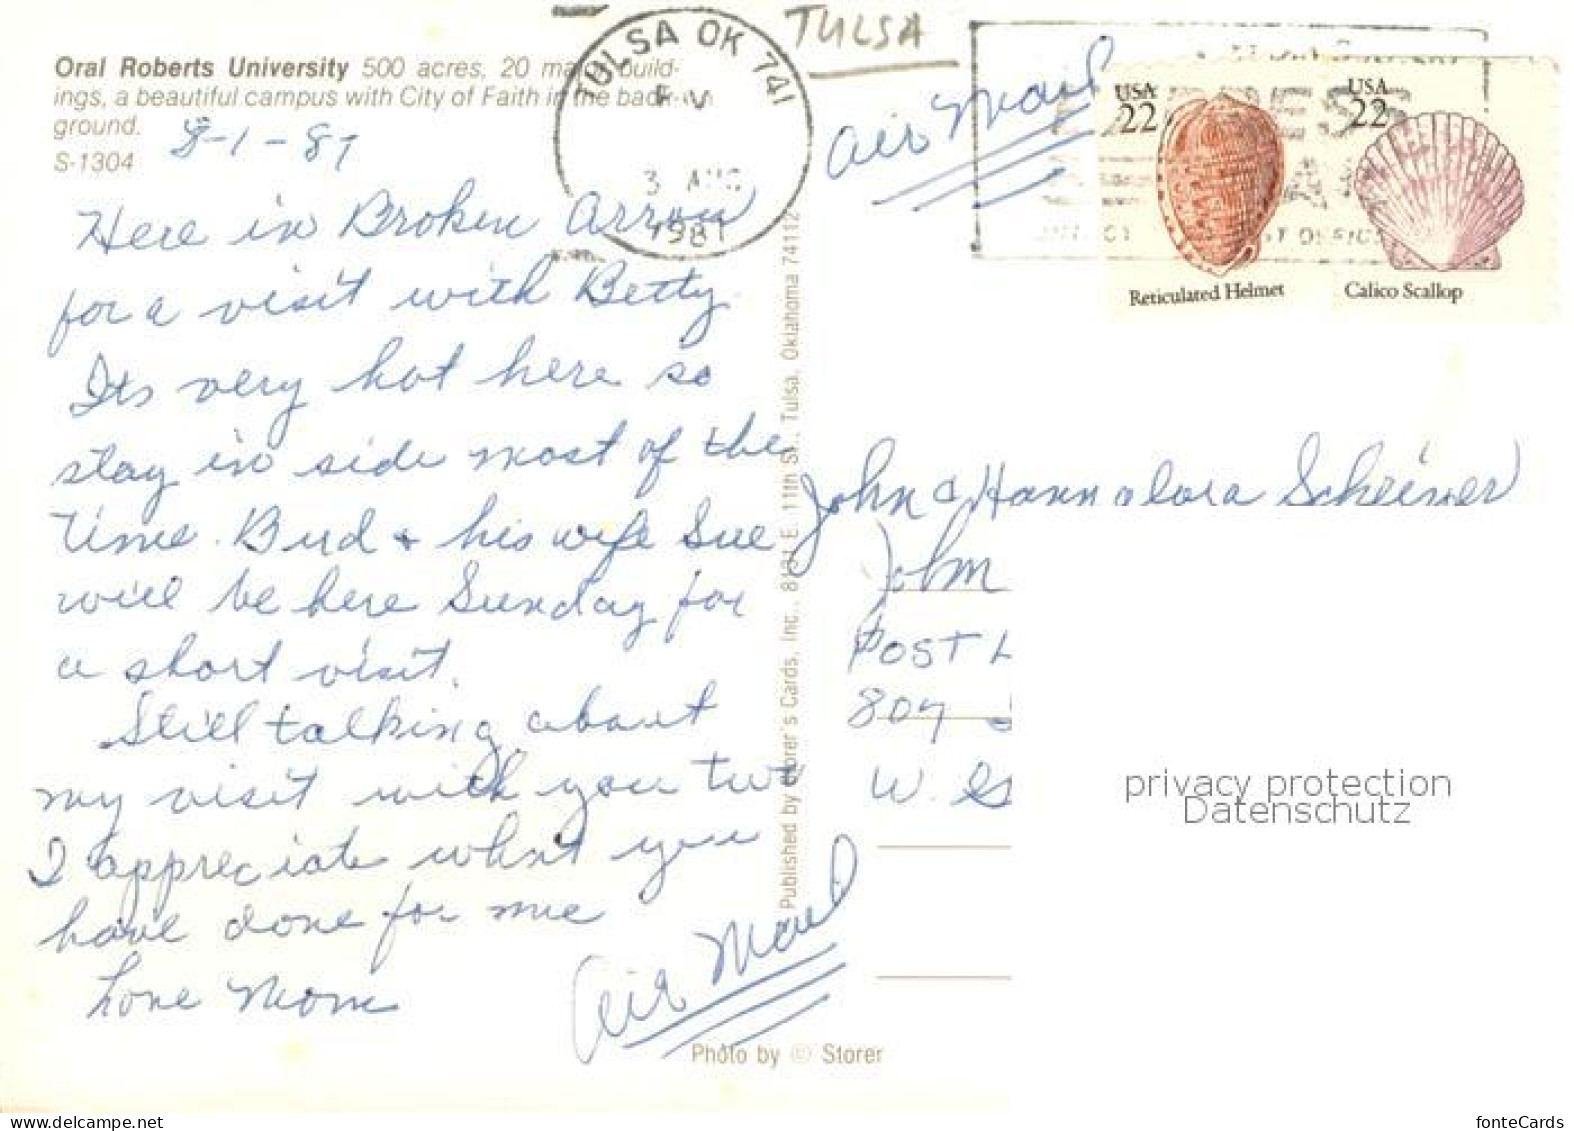 Oral Roberts University 500 acres, 20 major build-
ings, a beautiful campus with City of Faith in the back-
ground.
S-1304
8-1-87
Here in Broken Arrow
for a visit with Betty
Its very hot here so
stay in side most of the
time. Bud & his wife Sue
will be here Sunday for
a short visit.
Still talking about
my visit with you two
I appreciate what you
have done for me
Love Mom
Air Mail
Photo by © Storer
Published by Storer's Cards, Inc., 8131 E. 11th St., Tulsa, Oklahoma 74112
TULSA OK 741
3 AUG
1987
TULSA
Air Mail
USA
22
Reticulated Helmet
USA
22
Calico Scallop
John & Hannalora Schriner
John
POST
807
W.
privacy protection
Datenschutz
www.delcampe.net
fonteCards